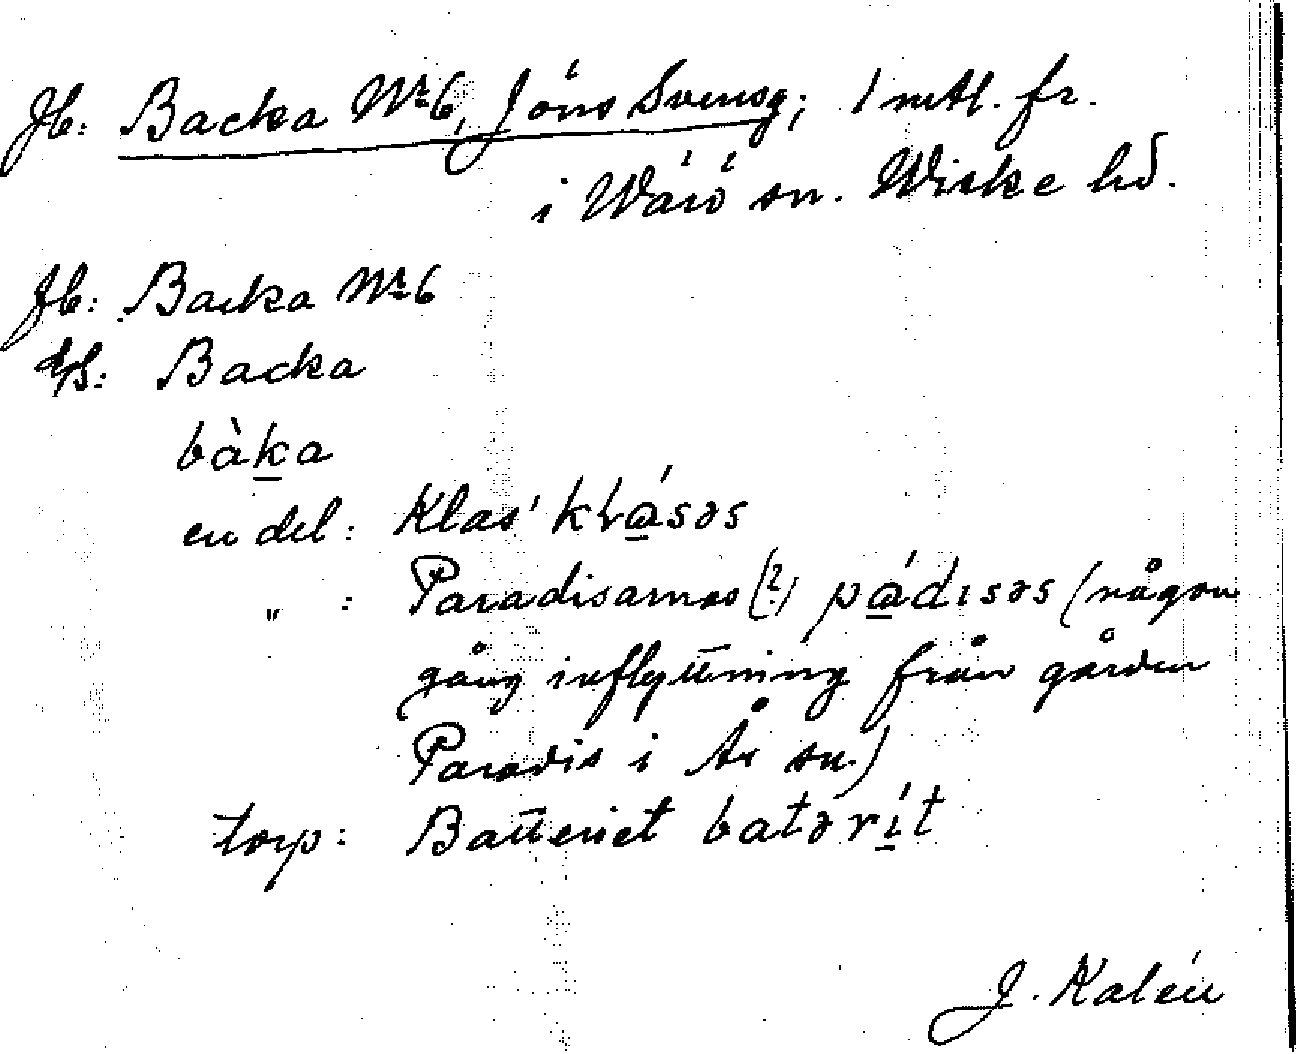 Jb: Backa No 6, Jöns Svensg; 1 mtl. fr.
i Wärö sn. Wiske hd.
Jb: Backa No 6
Backa
bàka
en del: Klas' klásəs
" : Paradisarnas (?) pádisəs (någon
gång inflyttning från gården
Paradis i Ås sn.)
torp: Batteriet batərít
J. Kalén